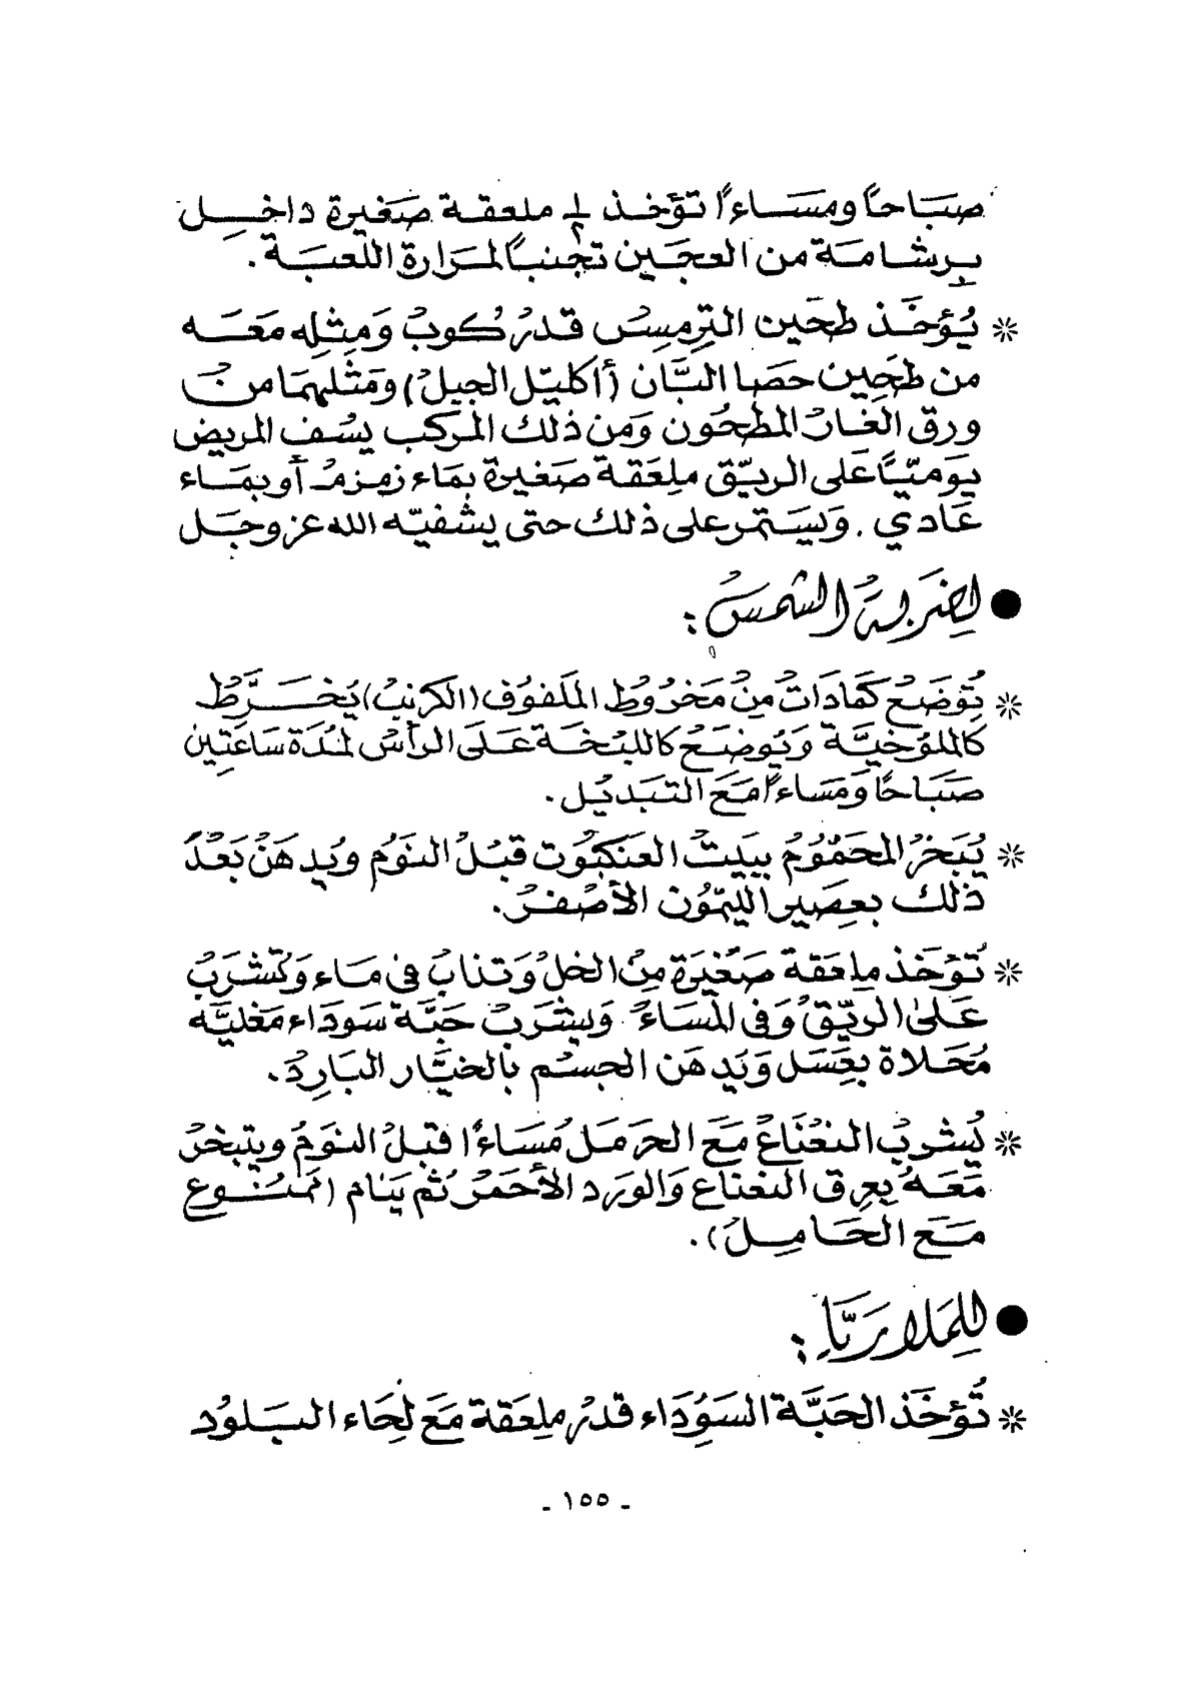 صَبَاحاً ومسَاءاً تؤخذ ½ ملعقة صَغيرة داخِل
بِرشامَة من العجَين تجنباً لمرَارة اللعبَة .
* يُؤخَذ طحَين الترِمسِ قدرُ كُوبُ وَمِثِله مَعَه
من طَحِين حصَا البَّان (أكليّل الجبلْ) وَمثْلهمَا من
ورق الغَارُ المطحُون وَمن ذلك المَركب يسُف المريض
يوميّاً عَلى الريّق ملِعَقة صَغيرة بمَاء زمزمُ أو بمَاء
عَادي . وَيسَتمر على ذلك حتى يشفيّه الله عز وجَل
● لِضَربة الشمسُ :
* تُوضَعُ كمَادَاتُ مِنْ مَخرُوطِ الملَفوُف (الكرنبُ) يُخَرَّطُ
كالملوُخيَّة وَيُوضَعُ كاللبْخَة عَلَى الرأسْ لمُدَة سَاعَتِين
صَبَاحاً وَمسَاءاً مَعَ التبَديُل .
* يُبَخرُ المحَمُومُ ببَيتُ العنَكبُوت قبْلُ النوَمُ ويُدهَنْ بَعْدُ
ذلك بعِصَير الليّمُون الأصْفرُ .
* تُؤخَذ ملِعَقة صَغيَرة مِنُ الخلُ وَتذابُ في مَاء وَتُشرَبُ
عَلىٰ الريّقُ وَفي المسَاءُ وَيشرَبُ حَبَّة سَودَاء مَغليَّه
مُحَلاة بعِسَل وَيَدهَن الجسُم بالخيَّار البَارِدُ .
* يُشربُ النعْنَاعُ مَعَ الحرَمَل مُسَاءاً قبْلُ النوَمُ ويتبخرُ
مَعَهُ بِعِرق النعْناع وَالورَد الأحَمرُ ثم يَنام (ممَنُوع
مَعَ الحَامِلُ) .
● للِمَلاريَّا :
* تُؤخَذ الحَبَّة السَوُدَاء قدرُ ملِعَقة مَعَ لحِاء البَلوُد
- ١٥٥ -